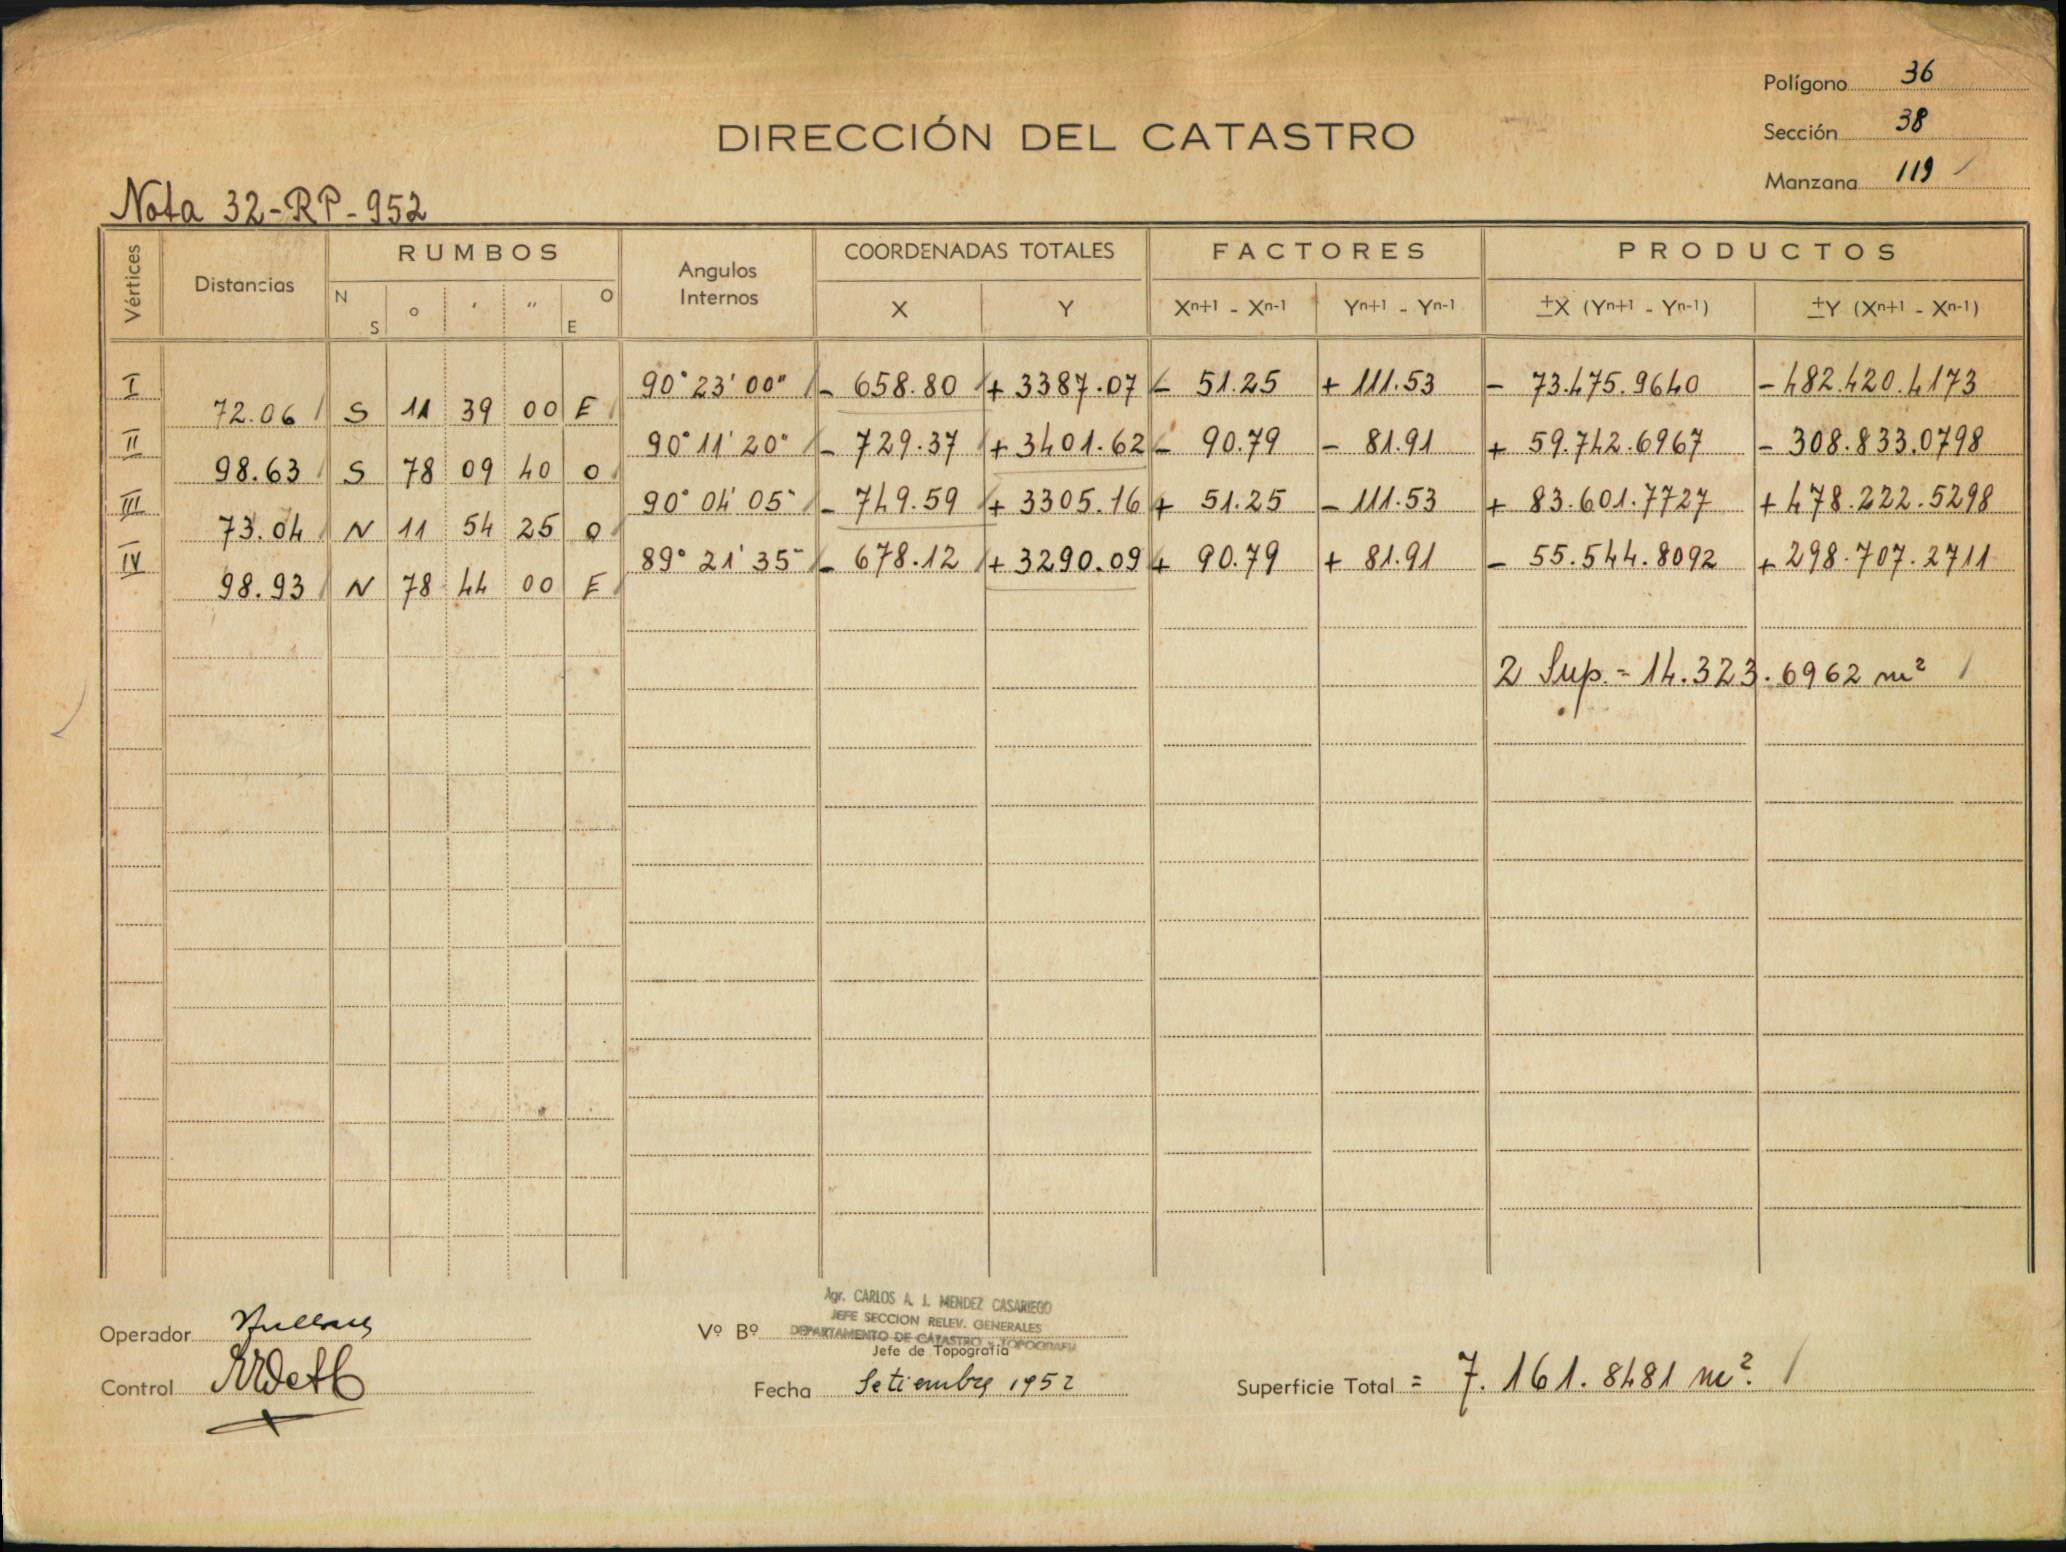 Polígono 36
Sección 38
Manzana 119
DIRECCIÓN DEL CATASTRO
Nota 32-RP-952
Vértices Distancias RUMBOS Angulos Internos COORDENADAS TOTALES FACTORES PRODUCTOS
N S o ' " O E X Y Xn+1 - Xn-1 Yn+1 - Yn-1 ±X (Yn+1 - Yn-1) ±Y (Xn+1 - Xn-1)
I 90° 23' 00" - 658.80 + 3387.07 - 51.25 + 111.53 - 73.475.9640 - 482.420.4173
72.06 S 11 39 00 E
II 90° 11' 20" - 729.37 + 3401.62 - 90.79 - 81.91 + 59.742.6967 - 308.833.0798
98.63 S 78 09 40 O
III 90° 04' 05" - 749.59 + 3305.16 + 51.25 - 111.53 + 83.601.7727 + 478.222.5298
73.04 N 11 54 25 O
IV 89° 21' 35" - 678.12 + 3290.09 + 90.79 + 81.91 - 55.544.8092 + 298.707.2711
98.93 N 78 44 00 E
2 Sup. = 14.323.6962 m²
Agr. CARLOS A. J. MENDEZ CASARIEGO
JEFE SECCION RELEV. GENERALES
DEPARTAMENTO DE CATASTRO y TOPOGRAFIA
Operador
Vº Bº
Jefe de Topografía
Control
Fecha Setiembre 1952
Superficie Total = 7.161.8481 m².